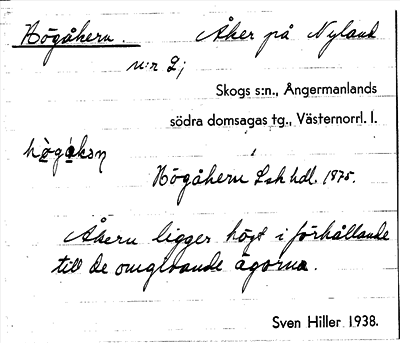 Högåkern. Åker på Nyland
n:r 2;
Skogs s:n., Ångermanlands
södra domsagas tg., Västernorrl. l.
högåkən
Högåkern Lsk hdl. 1875.
Åkern ligger högt i förhållande
till de omgivande ägorna.
Sven Hiller 1938.